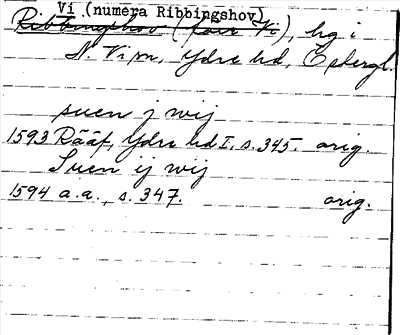 Vi (numera Ribbingshov)
Ribbingshov (förr Vi), hg i
N. Vi sn, Ydre hd, Östergl.
suen j wij
1593 Rääf, Ydre hd I, s. 345. orig.
Suen ij wij
1594 a.a., s. 347. orig.